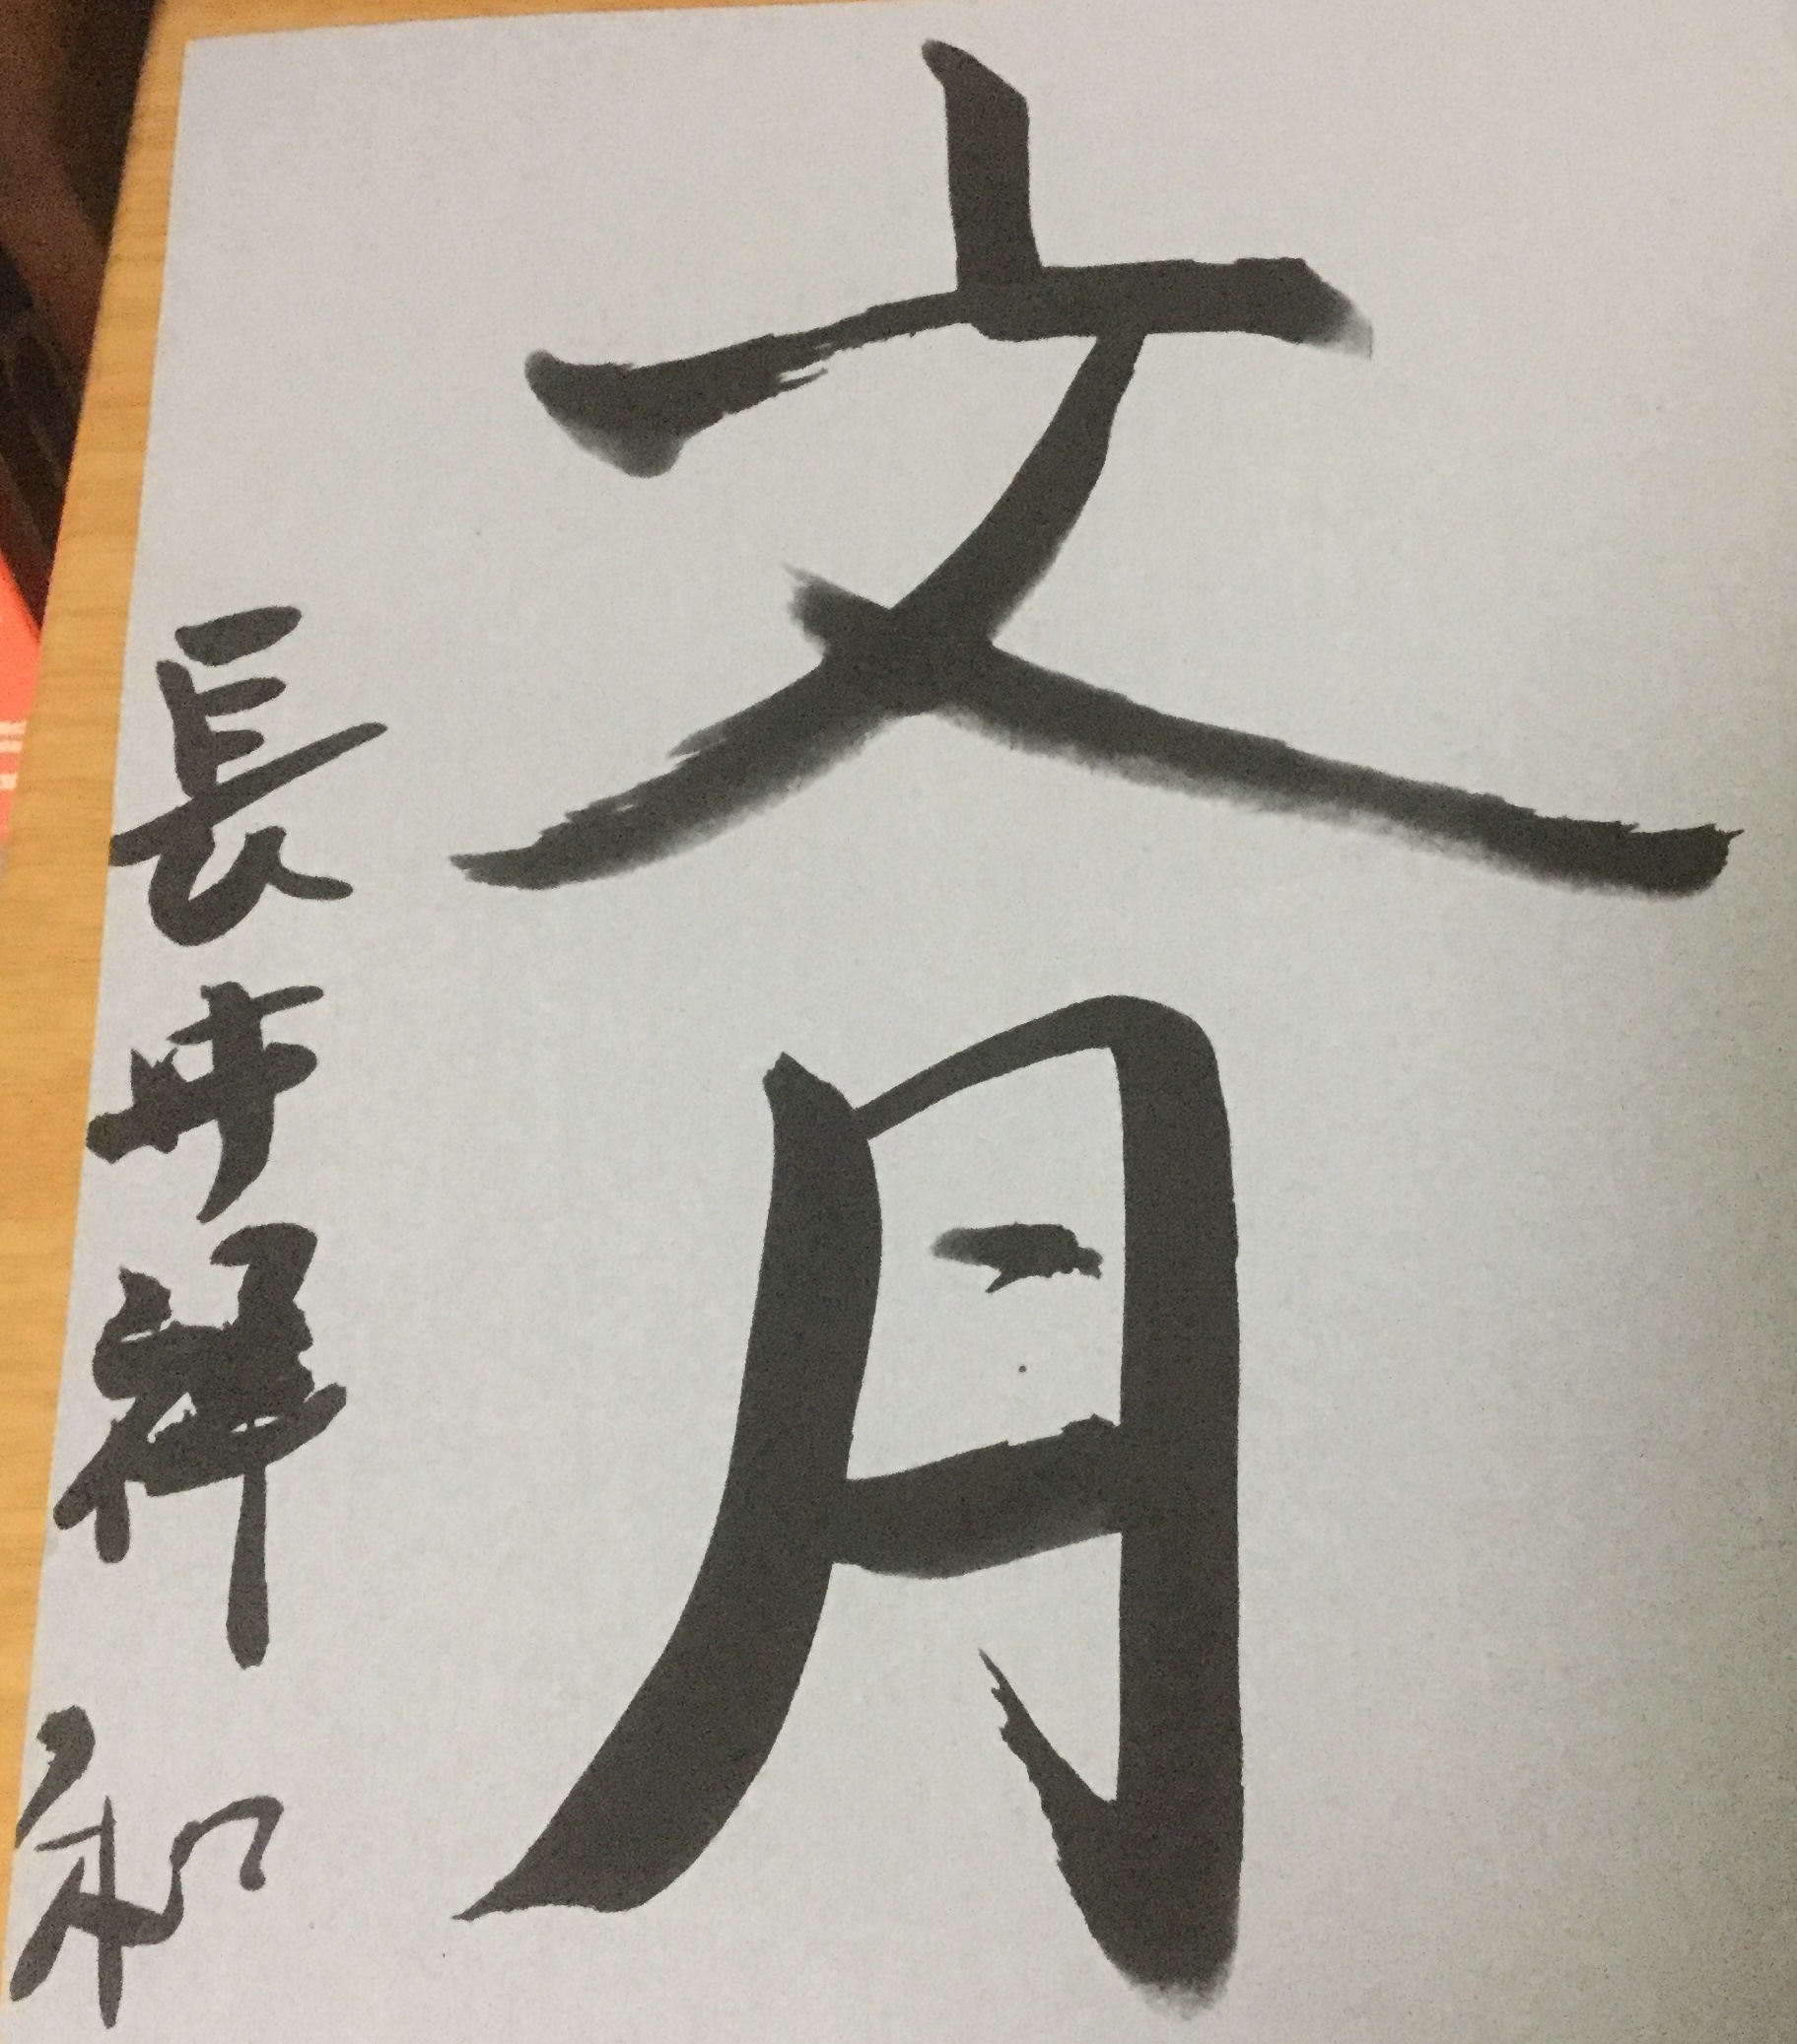 文月
長井祥和